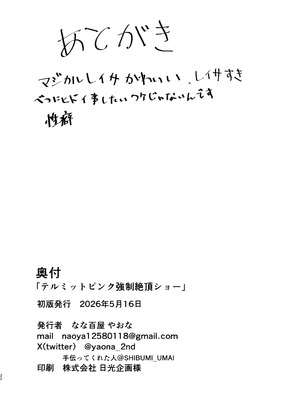 あとがき
マジカルレイサかわいい、レイサすき
べつにヒドイ事したいワケじゃないんです
性癖
奥付
「テルミットピンク強制絶頂ショー」
初版発行 2026年5月16日
発行者 なな百屋 やおな
mail naoya12580118@gmail.com
X(twitter) @yaona_2nd
手伝ってくれた人@SHIBUMI_UMAI
印刷 株式会社 日光企画様